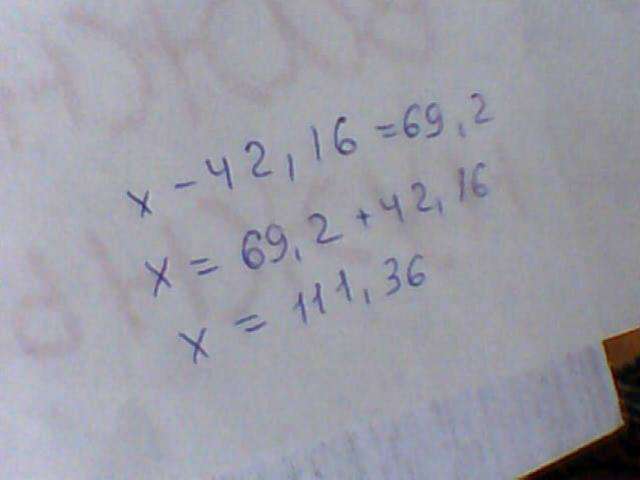 x - 42,16 = 69,2
x = 69,2 + 42,16
x = 111,36